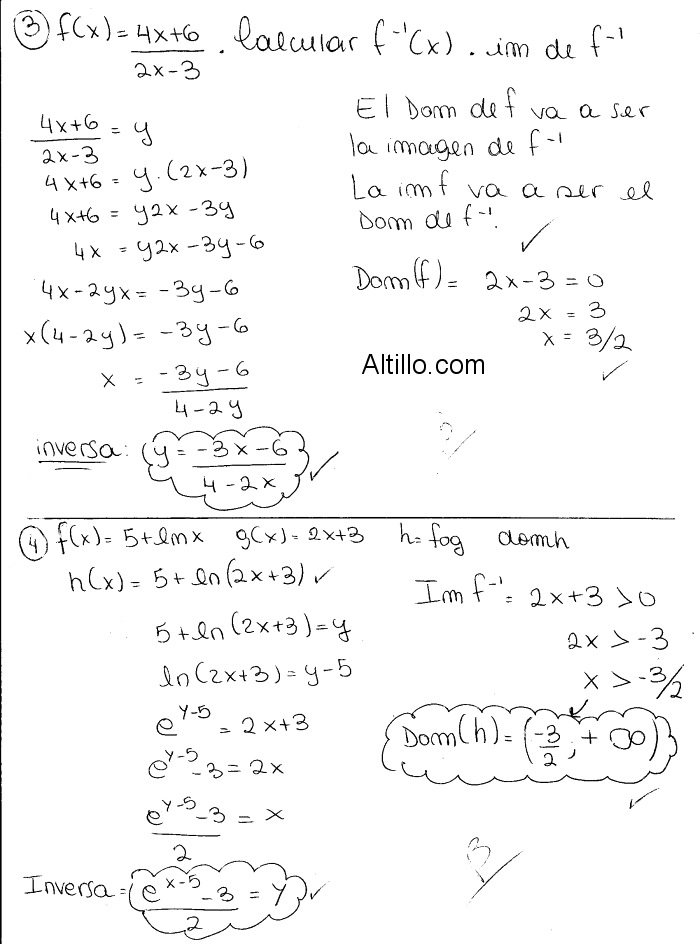 ③ f(x) = 4x+6 / 2x-3 . Calcular f⁻¹(x) . im de f⁻¹
4x+6 / 2x-3 = y
4x+6 = y.(2x-3)
4x+6 = y2x-3y
4x = y2x-3y-6
4x-2yx = -3y-6
x(4-2y) = -3y-6
x = -3y-6 / 4-2y
inversa: y = -3x-6 / 4-2x ✓
El Dom de f va a ser
la imagen de f⁻¹
La im f va a ser el
Dom de f⁻¹. ✓
Dom(f) = 2x-3 = 0
2x = 3
x = 3/2 ✓
Altillo.com
④ f(x) = 5+ln x g(x) = 2x+3 h = fog dom h
h(x) = 5+ ln(2x+3) ✓
5+ln(2x+3) = y
ln(2x+3) = y-5
e^y-5 = 2x+3
e^y-5 -3 = 2x
e^y-5 -3 / 2 = x
Inversa = e^x-5 -3 / 2 = y ✓
Im f⁻¹ = 2x+3 >0
2x > -3
x > -3/2
Dom(h) = (-3/2 ; + ∞) ✓